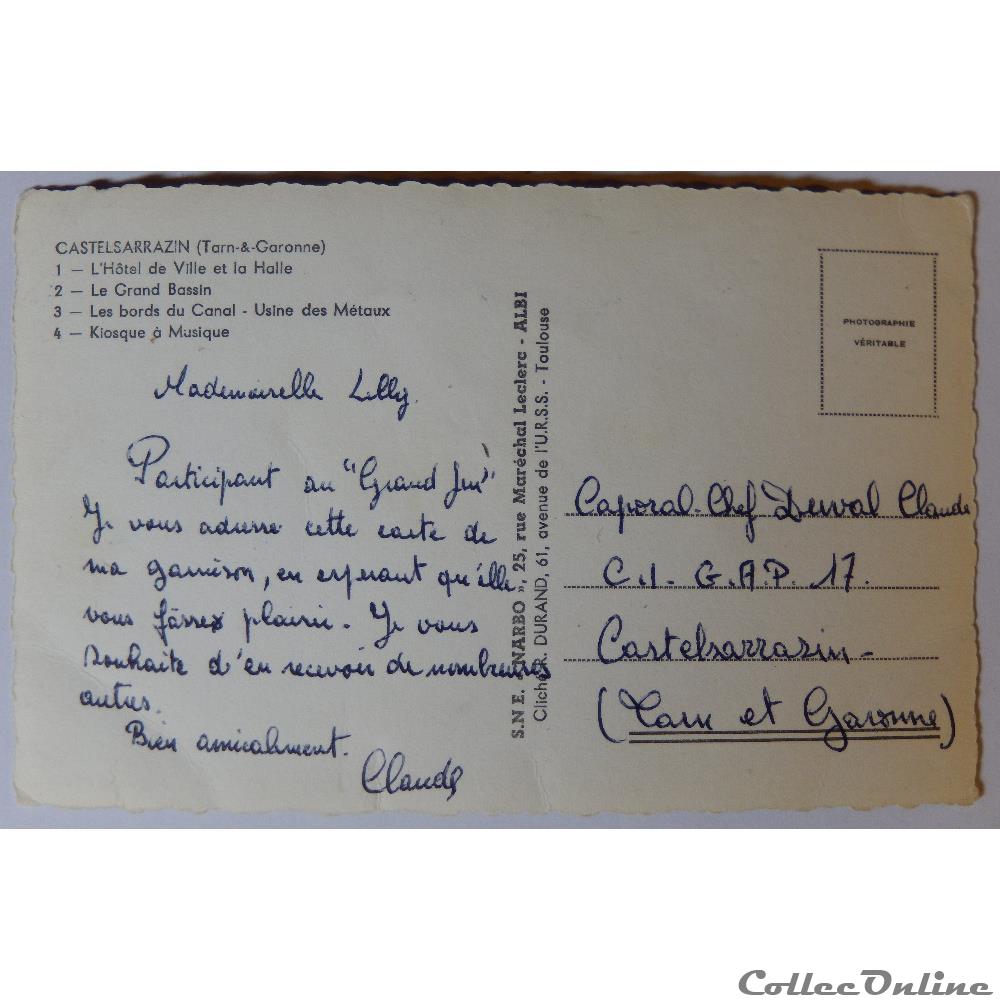 CASTELSARRAZIN (Tarn-&-Garonne)
1 — L'Hôtel de Ville et la Halle
2 — Le Grand Bassin
3 — Les bords du Canal - Usine des Métaux
4 — Kiosque à Musique
Mademoiselle Lilly.
Participant au "Grand Jeu"
Je vous adresse cette carte de
ma garnison, en espérant qu'elle
vous fasse plaisir. Je vous
souhaite d'en recevoir de nombreuses
autres.
Bien amicalement.
Claude
S.N.E. « NARBO », 25, rue Maréchal Leclerc - ALBI
Cliché R. DURAND, 61, avenue de l'U.R.S.S. - Toulouse
PHOTOGRAPHIE
VÉRITABLE
Caporal-Chef Duval Claude
C.I. G.A.P. 17.
Castelsarrasin -
(Tarn et Garonne)
CollecOnline